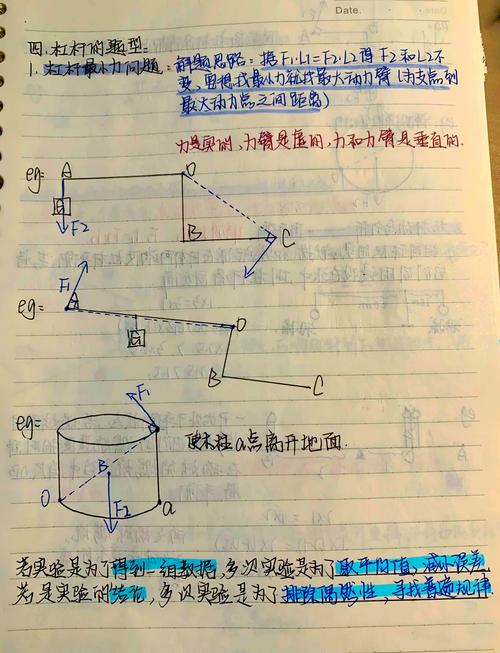 Date.
四.杠杆的题型:
1.杠杆最小力问题.:解题思路:据F₁·L₁=F₂·L₂得F₂和L₂不
变,要想找最小力就找最大动力臂(为支点到
最大动点之间距离)
力是实的,力臂是虚的,力和力臂是垂直的.
eg=
A
O
G
F2
B
C
F1
eg=
A
G
O
B
C
eg=
F1
要木桩a点离开地面.
B
O
F2
a
若实验是为了得到一组数据,多次实验是为了取平均值,减小误差.
若是实验的结论,多次实验是为了排除偶然性,寻找普遍规律.